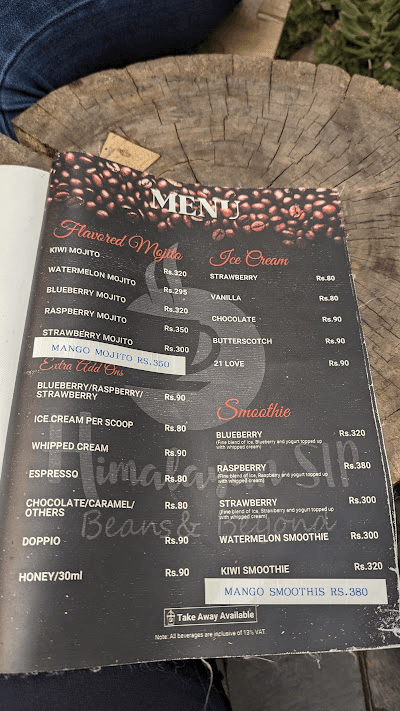 MENU
Flavored Mojito
KIWI MOJITO Rs.320
WATERMELON MOJITO Rs.295
BLUEBERRY MOJITO Rs.320
RASPBERRY MOJITO Rs.350
STRAWBERRY MOJITO Rs.300
MANGO MOJITO RS.350
Extra Add Ons
BLUEBERRY/RASPBERRY/
STRAWBERRY Rs.90
ICE.CREAM PER SCOOP Rs.80
WHIPPED CREAM Rs.90
ESPRESSO Rs.80
CHOCOLATE/CARAMEL/
OTHERS Rs.80
DOPPIO Rs.90
HONEY/30ml Rs.90
Ice Cream
STRAWBERRY Rs.80
VANILLA Rs.80
CHOCOLATE Rs.90
BUTTERSCOTCH Rs.90
21 LOVE Rs.90
Smoothie
BLUEBERRY Rs.320
(Fine blend of ice, Blueberry and yogurt topped up
with whipped cream)
RASPBERRY Rs.380
(Fine blend of ice, Raspberry and yogurt topped up
with whipped cream)
STRAWBERRY Rs.300
(Fine blend of ice, Strawberry and yogurt topped up
with whipped cream)
WATERMELON SMOOTHIE Rs.300
KIWI SMOOTHIE Rs.320
MANGO SMOOTHIS RS.380
Himalayan SIP
Beans & Beyond
Take Away Available
Note: All beverages are inclusive of 13% VAT.